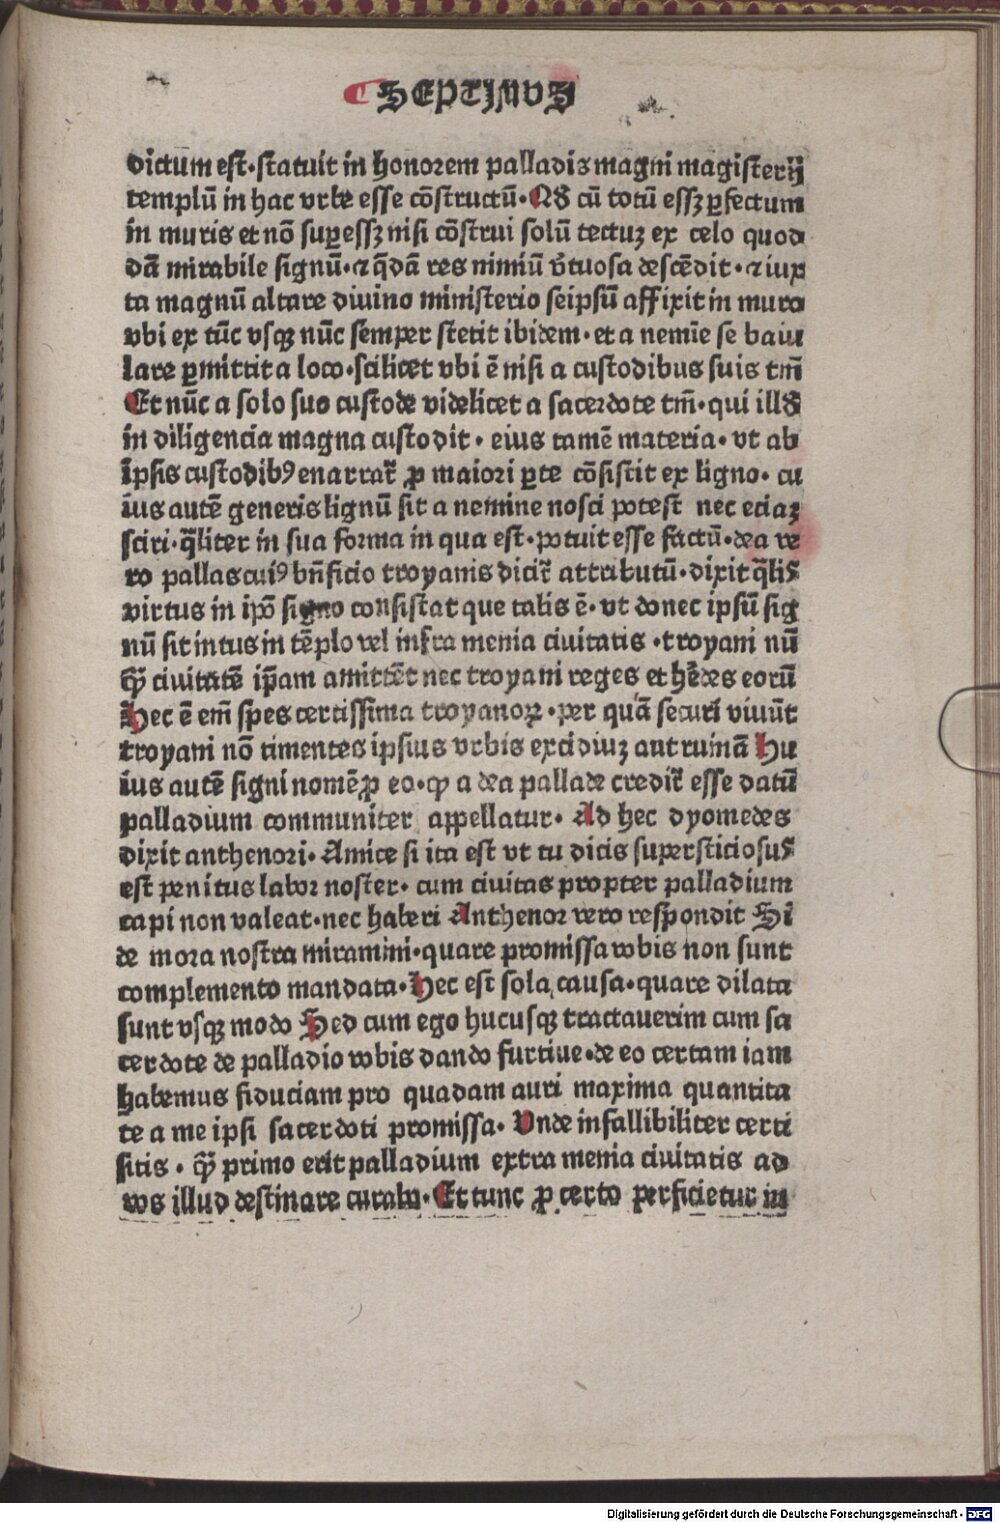 SEPTIMVS
dictum est·statuit in honorem palladis magni magisterij
templū in hac vrbe esse cōstructū·Qd cū totū essꝫ ꝑfectum
in muris et nō suꝑessꝫ nisi cōstrui solū tectuꝫ ex celo quod
dā mirabile signū·⁊ q̄dā res nimiū v̄tuosa descēdit·⁊ iux
ta magnū altare diuino ministerio seipsū affixit in muro
vbi ex tūc vsqꝫ nūc semper stetit ibidem·et a nemīe se baiu
lare ꝑmittit a loco·scilicet vbi ē nisi a custodibus suis tm̄
Et nūc a solo suo custode videlicet a sacerdote tm̄·qui illd
in diligencia magna custodit·eius tamē materia·vt ab
ipsis custodibꝰ enarrat̄ ꝓ maiori ꝑte cōsistit ex ligno·cu
ius autē generis lignū sit a nemine nosci potest nec eciaꝫ
sciri·q̄liter in sua forma in qua est·potuit esse factū·dea ve
ro pallas cuiꝰ bn̄ficio troyanis dicit̄ attributū·dixit q̄lis
virtus in ip̄o signo consistat que talis ē·vt donec ipsū sig
nū sit intus in tēplo vel infra menia ciuitatis·troyani nū
qͣꝫ ciuitatē ip̄am amittēt nec troyani reges et hēdes eorū
Hec ē em̄ sp̄es certissima troyanoꝝ·per quā securi viuūt
troyani nō timentes ipsius vrbis excidiuꝫ aut ruinā Hu
ius autē signi nomē ꝓ eo·ꝙ a dea pallade credit̄ esse datū
palladium communiter appellatur·Ad hec dyomedes
dixit anthenori·Amice si ita est vt tu dicis supersticiosus
est penitus labor noster·cum ciuitas propter palladium
capi non valeat·nec haberi Anthenor vero respondit Si
de mora nostra miramini·quare promissa vobis non sunt
complemento mandata·Hec est sola causa·quare dilata
sunt vsqꝫ modo Sed cum ego hucusqꝫ tractauerim cum sa
cerdote de palladio vobis dando furtiue·de eo certam iam
habemus fiduciam pro quadam auri maxima quantita
te a me ipsi sacerdoti promissa·Vnde infallibiliter certi
sitis·ꝙ primo erit palladium extra menia ciuitatis ad
vos illud destinare curabo·Et tunc ꝓ certo perficietur in
Digitalisierung gefördert durch die Deutsche Forschungsgemeinschaft - DFG